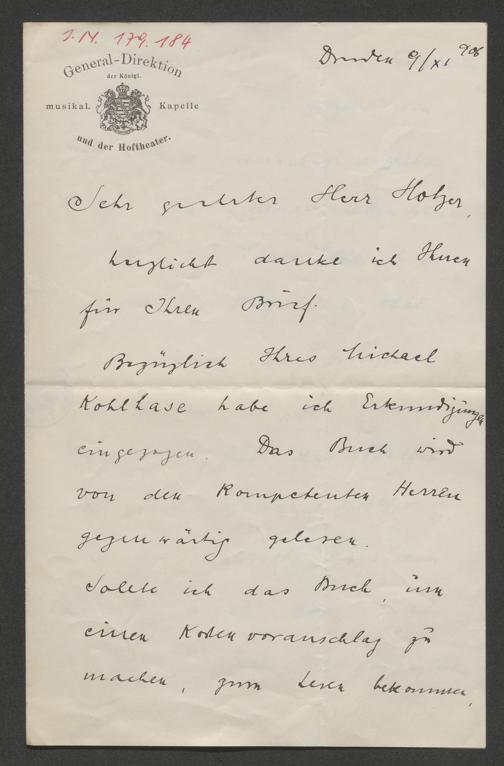 I.N. 179.184
General-Direktion
der Königl.
musikal. Kapelle
und der Hoftheater.
Dresden 9/XI 908
Sehr geehrter Herr Holzer,
herzlichst danke ich Ihnen
für Ihren Brief.
Bezüglich Ihres Michael
Kohlhase habe ich Erkundigungen
eingezogen. Das Buch wird
von den Kompetenten Herren
gegenwärtig gelesen.
Sollte ich das Buch, um
einen Kostenvoranschlag zu
machen, zum Lesen bekommen,